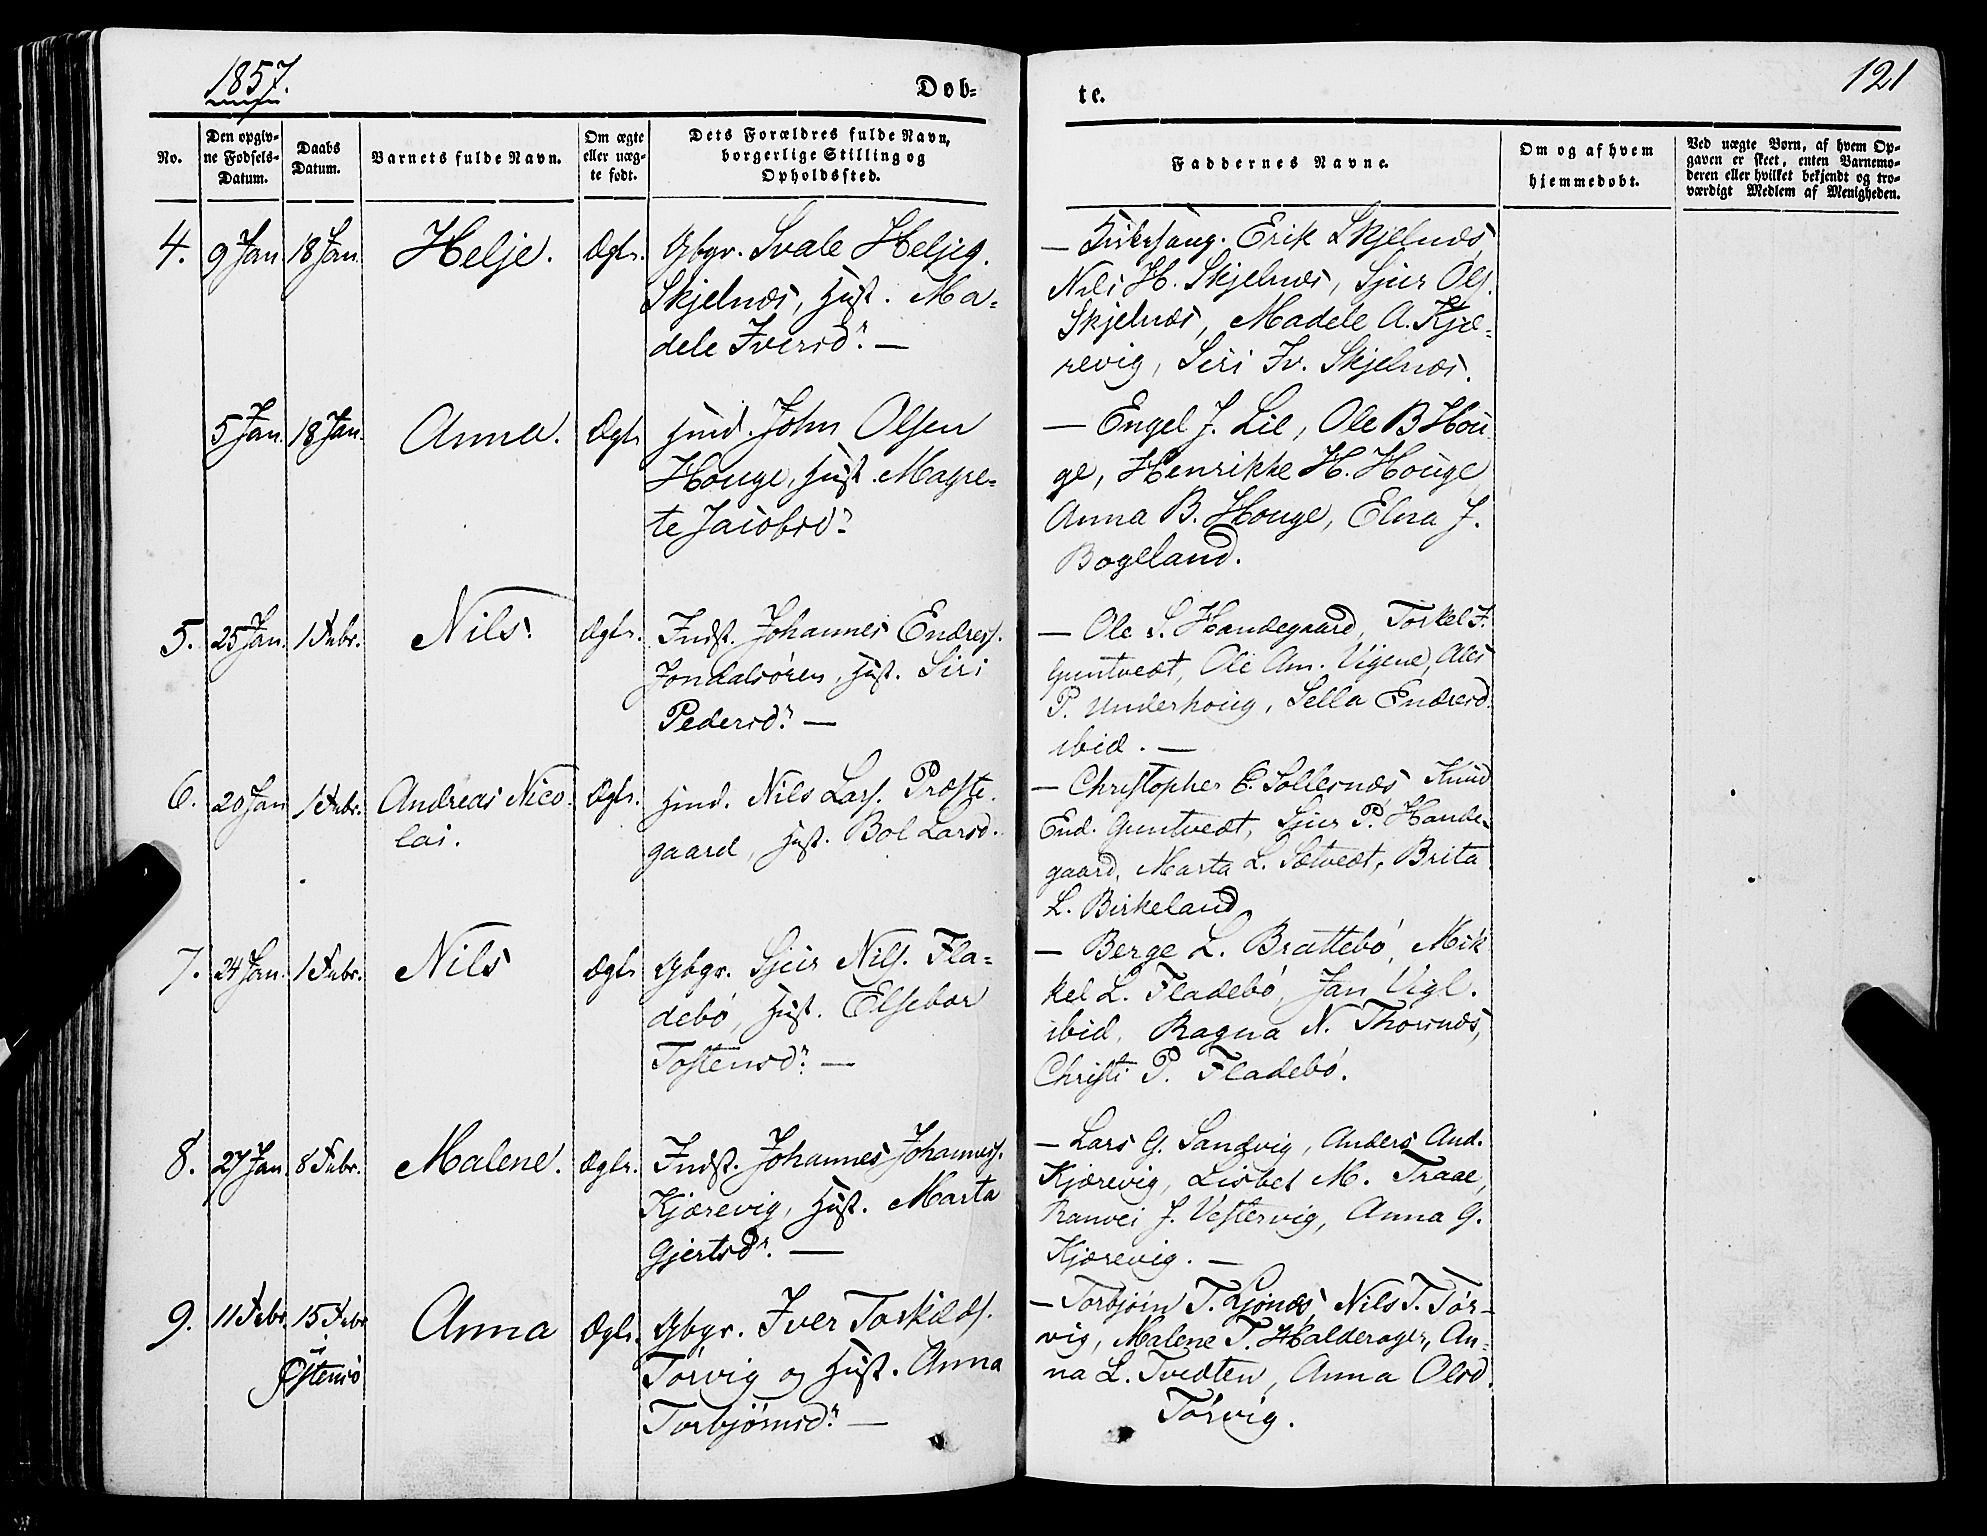 1857.
Døb-
te.
121
No.
Den opgiv-
ne Fødsels-
Datum.
Daabs
Datum.
Barnets fulde Navn.
Om ægte
eller uæg-
te født.
Dets Forældres fulde Navn,
borgerlige Stilling og
Opholdssted.
Faddernes Navne.
Om og af hvem
hjemmedøbt.
Ved uægte Børn, af hvem Op-
gaven er skeet, enten Barnemo-
deren eller hvilket bekjendt og tro-
værdigt Medlem af Menigheden.
4. 9 Jan 18 Jan Helje. Ægte. Gbgr. Svale Heljes.
Skjelnæs, Hust. Ma-
dele Iversd. —
— Kirkesang. Erik Skjelnæs,
Nels H. Skjelnæs, Sjur Ols.
Skjelnæs, Madele A. Kjæ-
revig, Siri Iv. Skjelnæs.
5 Jan. 18 Jan. Anna. Ægte Hmd. John Olsen
Houge, Hust. Magre-
te Jacobsd.
— Engel J. Lie, Ole B Hou
ge, Henrikke H. Houge,
Anna B. Houge, Elna J.
Bogeland.
5. 25 Jan. 1 Febr. Nils. Ægte. Indst. Johannes Endres.
Jondalsøren, Hust. Siri
Pedersd. —
— Ole S. Handegaard, Torkel I.
Guntvedt, Ole Am. Vigene, Ales
P. Underhoug, Sella Endresd.
ibid. —
6. 20 Jan 1 Febr. Andreas Nico-
lai.
Ægte. Hmd. Nils Lars. Præste-
gaard, Hust. Bol Larsd.
— Christopher C. Sollesnæs, Knud
End. Guntvedt, Sjur P. Hande-
gaard, Marta L. Sætvedt, Brita
L. Birkeland
7. 24 Jan. 1 Febr. Nils Ægte Gbgr. Sjur Nils. Fla-
debø, Hust. Elsebar
Tostensd. —
— Berge L. Brattebø, Mik
kel L. Fladebø, Jan Vigl.
ibid, Ragna N. Thorsnæs,
Christi P. Fladebø.
8. 27 Jan. 8 Febr. Malene. Ægte. Indst. Johannes Johannes.
Kjærevig, Hust. Marta
Gjertsd. —
— Lars G. Sandvig, Anders And.
Kjærevig, Lisbet M. Traae,
Ranvei J. Vestervig, Anna G.
Kjærevig. —
9. 11 Febr. 15 Febr
i
Østensø
Anna Ægte. Gbgr. Iver Torkilds.
Tørvig og Hust. Anna
Torbjørnsd. —
— Torbjørn T. Ljonæs, Nils T. Tør-
vig, Malene T. Halderager, An-
na L. Tvedten, Anna Olsd.
Tørvig.